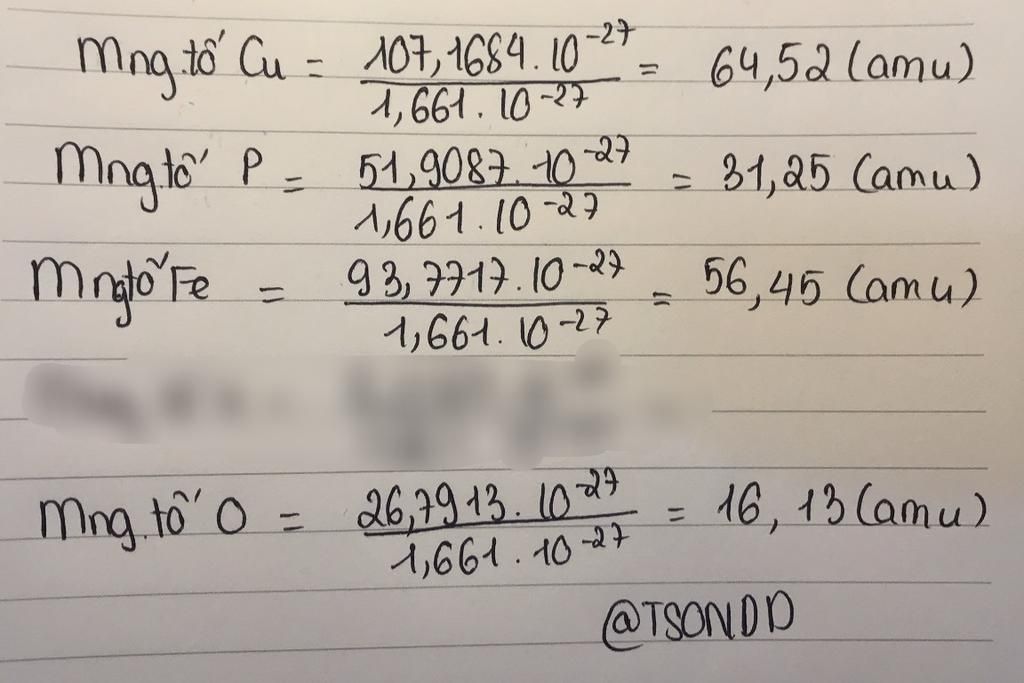 Mng.tố Cu = 107,1684.10⁻²⁷ / 1,661.10⁻²⁷ = 64,52 (amu)
Mng.tố P = 51,9087.10⁻²⁷ / 1,661.10⁻²⁷ = 31,25 (amu)
Mngtố Fe = 93,7717.10⁻²⁷ / 1,661.10⁻²⁷ = 56,45 (amu)
Mng.tố O = 26,7913.10⁻²⁷ / 1,661.10⁻²⁷ = 16,13 (amu)
@TSONDD